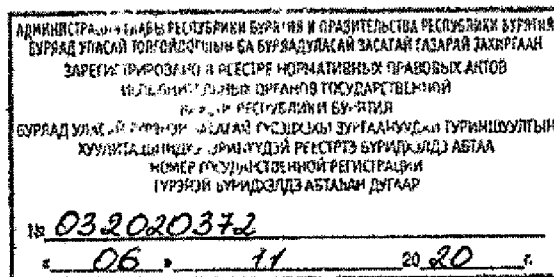 АДМИНИСТРАЦИЯ ГЛАВЫ РЕСПУБЛИКИ БУРЯТИЯ И ПРАВИТЕЛЬСТВА РЕСПУБЛИКИ БУРЯТИЯ
БУРЯАД УЛАСАЙ ТОЛГОЙЛОГШЫН БА БУРЯАД УЛАСАЙ ЗАСАГАЙ ГАЗАРАЙ ЗАХИРГААН
ЗАРЕГИСТРИРОВАНО В РЕЕСТРЕ НОРМАТИВНЫХ ПРАВОВЫХ АКТОВ
ИСПОЛНИТЕЛЬНЫХ ОРГАНОВ ГОСУДАРСТВЕННОЙ
РЕСПУБЛИКИ БУРЯТИЯ
БУРЯАД УЛАСАЙ
НОМЕР ГОСУДАРСТВЕННОЙ РЕГИСТРАЦИИ
ГҮРЭНЭЙ БҮРИДХЭЛДЭ АБТАҺАН ДУГААР
№ 032020372
« 06 » 11 20 20 г.